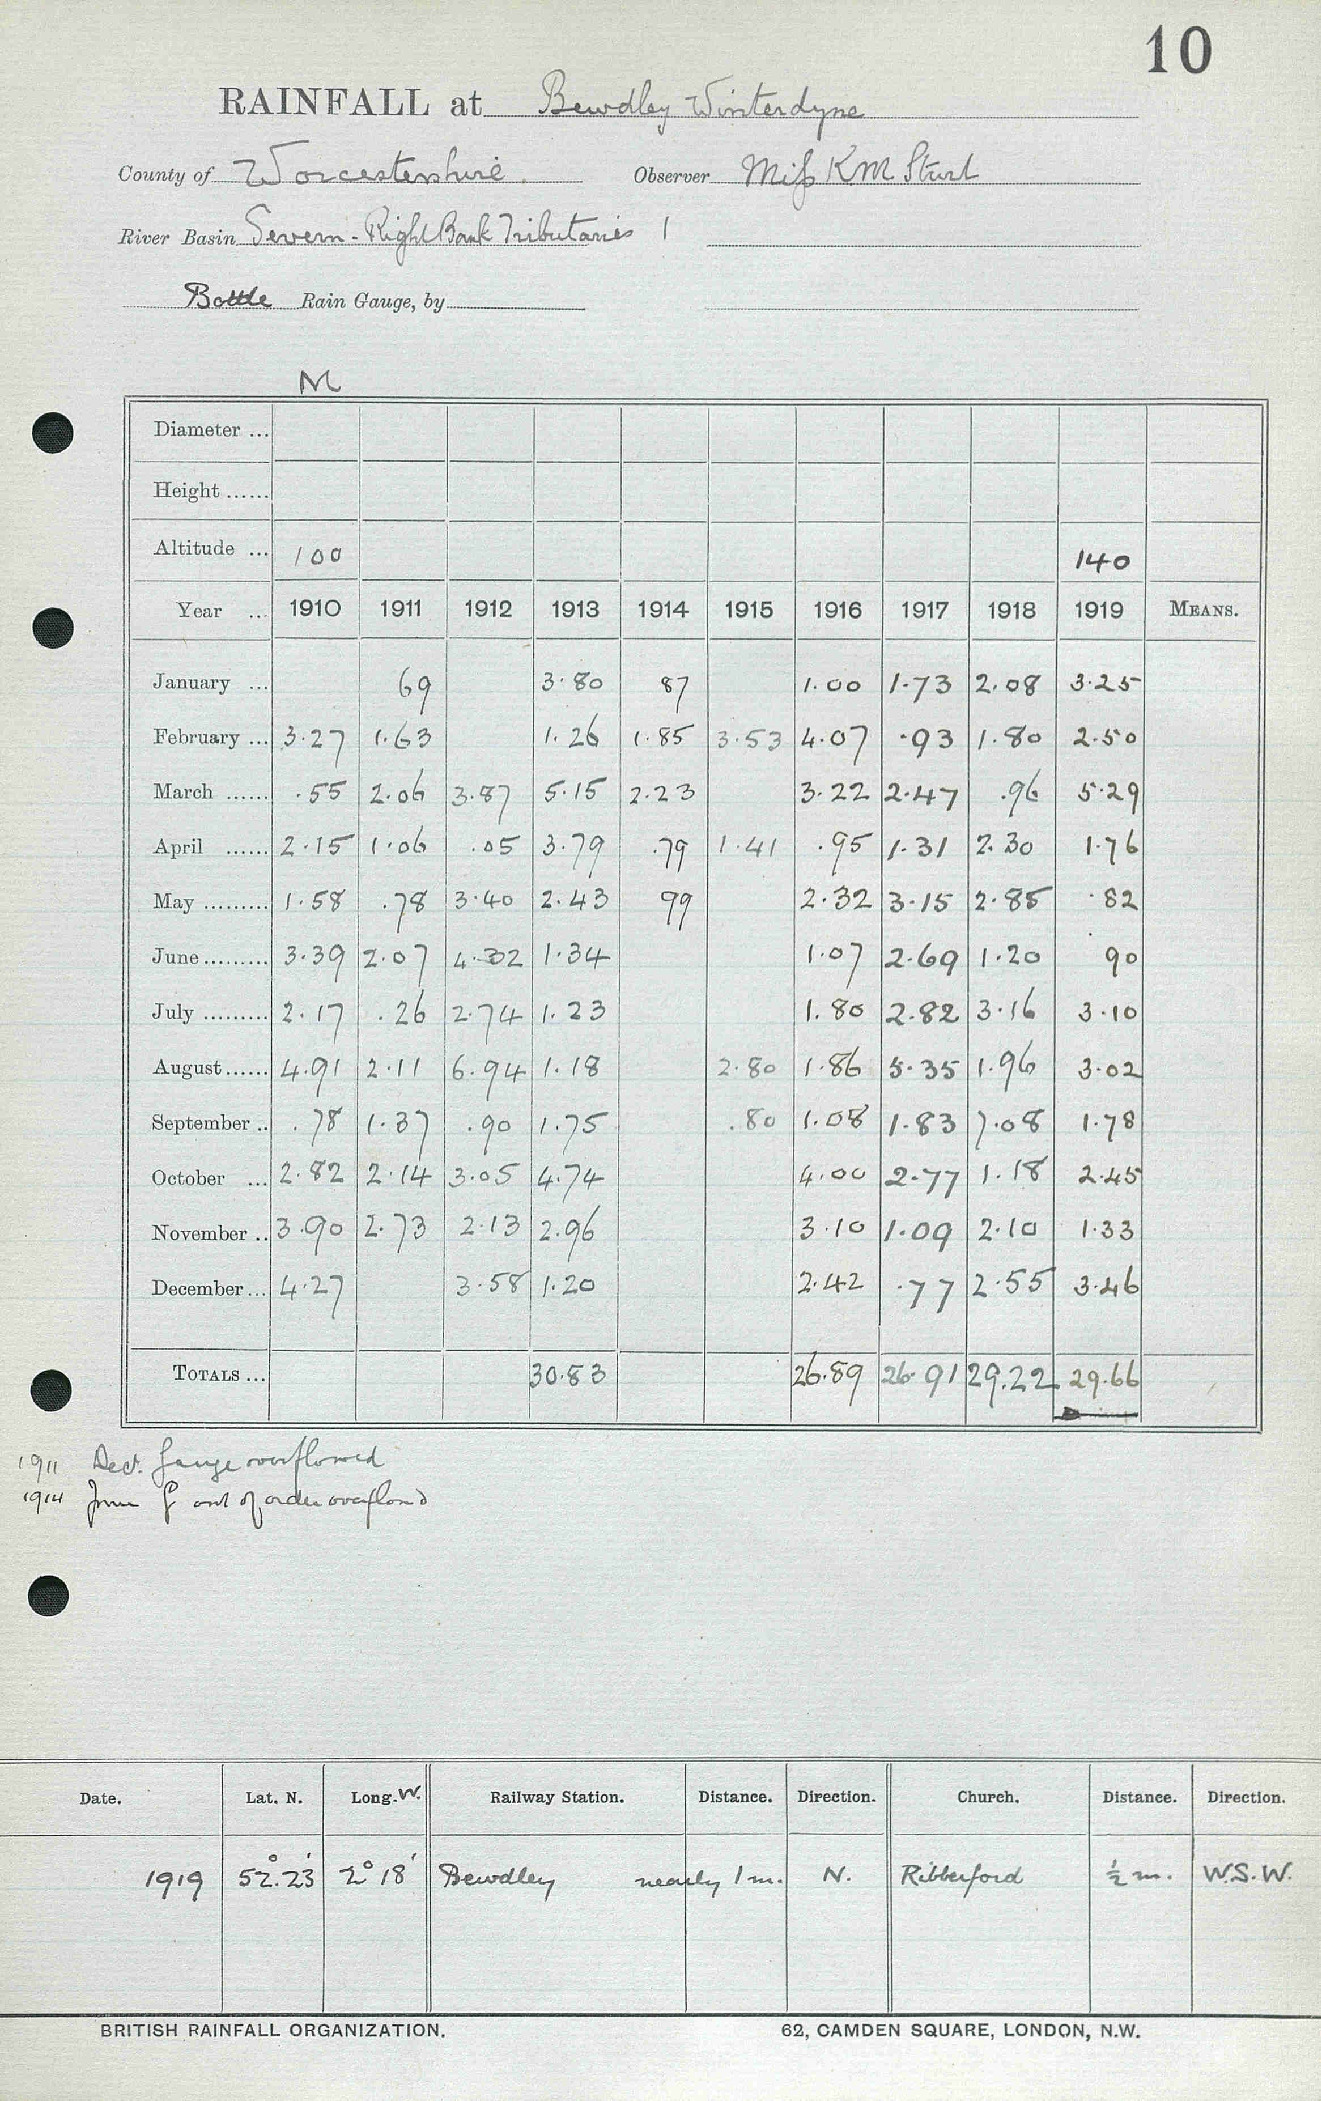 10
RAINFALL at Bewdley Winterdyne
County of Worcestershire. Observer Miss K M Sturt
River Basin Severn - Right Bank Tributaries 1
Bottle Rain Gauge, by
M
Diameter ...
Height ......
Altitude ... 100 140
Year ... 1910 1911 1912 1913 1914 1915 1916 1917 1918 1919 MEANS.
January ... 69 3.80 87 1.00 1.73 2.08 3.25
February ... 3.27 1.63 1.26 1.85 3.53 4.07 .93 1.80 2.50
March ...... .55 2.06 3.87 5.15 2.23 3.22 2.47 .96 5.29
April ...... 2.15 1.06 .05 3.79 .79 1.41 .95 1.31 2.30 1.76
May ......... 1.58 .78 3.40 2.43 99 2.32 3.15 2.85 .82
June ......... 3.39 2.07 4.32 1.34 1.07 2.69 1.20 90
July ......... 2.17 .26 2.74 1.23 1.80 2.82 3.16 3.10
August ...... 4.91 2.11 6.94 1.18 2.80 1.86 5.35 1.96 3.02
September .. .78 1.37 .90 1.75 .80 1.08 1.83 7.08 1.78
October ... 2.82 2.14 3.05 4.74 4.00 2.77 1.18 2.45
November .. 3.90 2.73 2.13 2.96 3.10 1.09 2.10 1.33
December ... 4.27 3.58 1.20 2.42 .77 2.55 3.46
TOTALS ... 30.83 26.89 26.91 29.22 29.66
1911 Dec. Gauge overflowed
1914 June G out of order overflowd
Date. Lat. N. Long. W. Railway Station. Distance. Direction. Church. Distance. Direction.
1919 52° 23' 2° 18' Bewdley nearly 1 m. N. Ribbesford ½ m. W.S.W.
BRITISH RAINFALL ORGANIZATION. 62, CAMDEN SQUARE, LONDON, N.W.